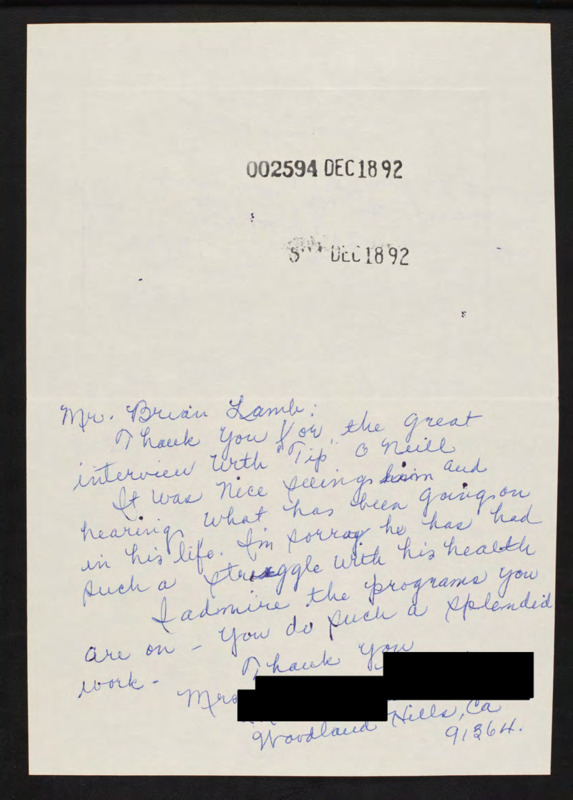 002594 DEC 18 92
DEC 18 92
Mr. Brian Lamb:
Thank you for the great
interview with "Tip" O'Neill
It was nice seeing him and
hearing what has been going on
in his life. I'm sorry he has had
such a struggle with his health
I admire the programs you
are on - You do such a splendid
work - Thank you
Mrs
Woodland Hills, Ca
91364.